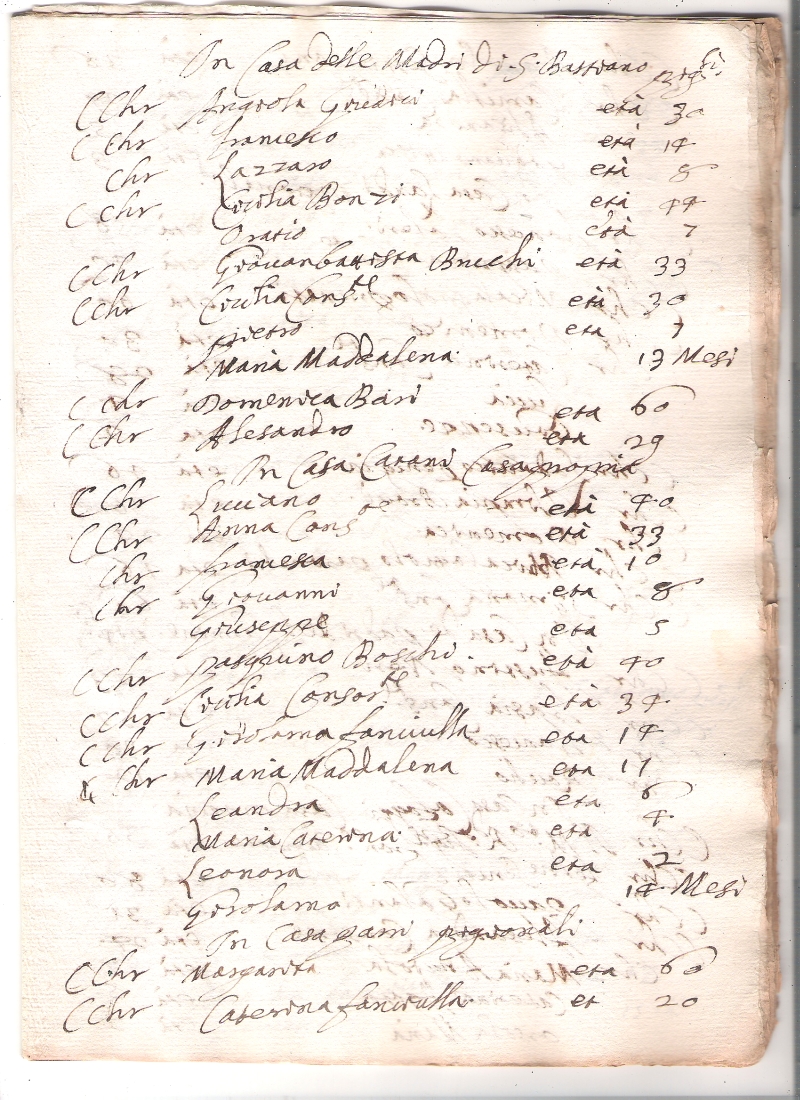 In Casa delle Madri di S. Bastiano
C Chr Angiola età 30
C Chr francesco età 14
Chr Lazzaro età 8
C Chr Cicilia Bonzi età 44
Oratio età 7
C Chr Giovanbattista Bucchi età 33
C Chr Cicilia Cons.te età 30
Pietro eta 7
Maria Maddalena 13 Mesi
C Chr Domenica Bari eta 60
C Chr Alesandro eta 29
In Casa Catani Casa propria
C Chr Luciano età 40
C Chr Anna Cons.te età 33
Chr francesca età 10
Chr Giovanni eta 8
Giuseppe eta 5
C Chr Pasquino Boschi età 40
C Chr Cicilia Consor.te età 34
C Chr Girolama fanciulla eta 14
Chr Maria Maddalena eta 11
Leandra eta 6
Maria Caterina eta 4
Leonora eta 2
Girolamo 14 Mesi
In Casa pigionali
C Chr Margarita eta 60
C Chr Caterina fanciulla et 20